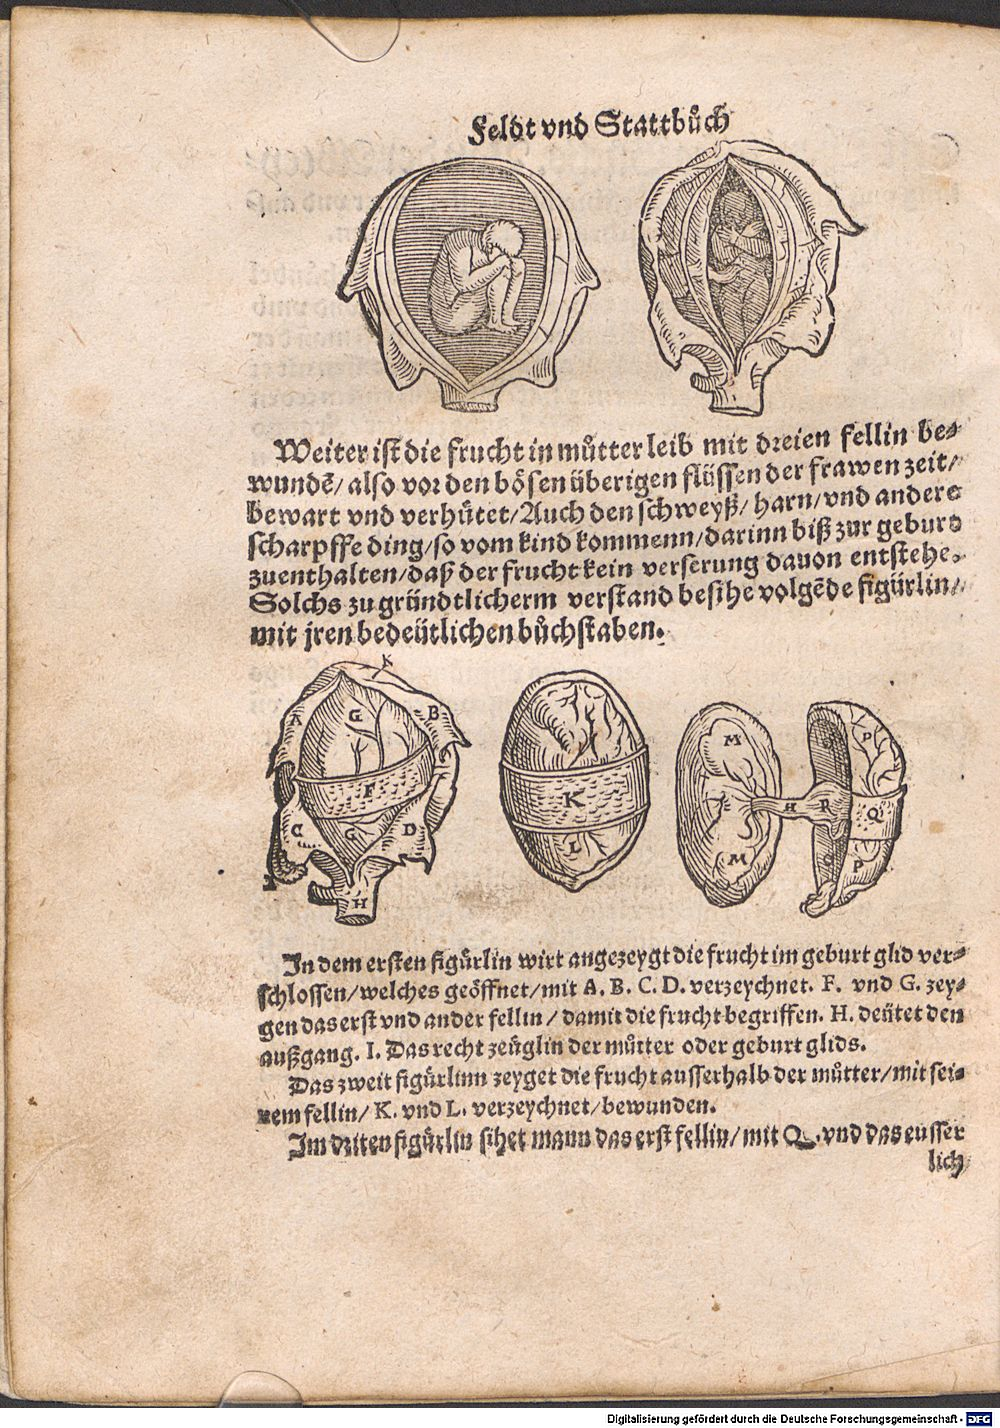 Feldt vnd Stattbůch
Weiter ist die frucht in můtter leib mit dreien fellin be⸗
wundē/ also vor den bösen überigen flüssen der frawen zeit/
bewart vnd verhütet/ Auch den schweyß/ harn/ vnd andere
scharpffe ding/ so vom kind kommenn/ darinn biß zur geburt
zuenthalten/ daß der frucht kein verserung dauon entstehe.
Solchs zu gründtlicherm verstand besihe volgēde figürlin/
mit jren bedeütlichen bůchstaben.
K
A G B
F
C G D
I H
K
L
M M
H R
P Q P
In dem ersten figürlin wirt angezeygt die frucht im geburt glid ver⸗
schlossen/ welches geöffnet/ mit A. B. C. D. verzeychnet. F. vnd G. zey⸗
gen das erst vnd ander fellin/ damit die frucht begriffen. H. deütet den
außgang. I. Das recht zeüglin der můtter oder geburt glids.
Das zweit figürlinn zeyget die frucht ausserhalb der můtter/ mit sei⸗
nem fellin/ K. vnd L. verzeychnet/ bewunden.
Im driten figürlin sihet mann das erst fellin/ mit Q. vnd das eusser
lich
Digitalisierung gefördert durch die Deutsche Forschungsgemeinschaft - DFG